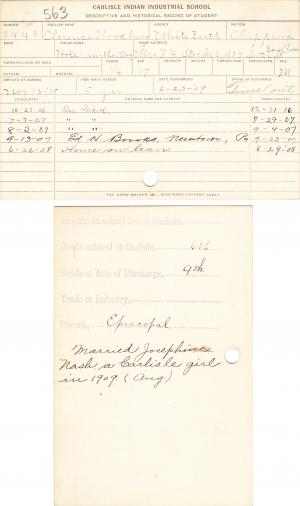 CARLISLE INDIAN INDUSTRIAL SCHOOL
DESCRIPTIVE AND HISTORICAL RECORD OF STUDENT
563
NUMBER ENGLISH NAME AGENCY NATION
3443 Clarence Woodbury White Earth Chippewa
INDIAN NAME HOME ADDRESS
Hole-in-the-Day
BLOOD AGE HEIGHT WEIGHT SEX
1/4 17 M
ARRIVED AT SCHOOL FOR WHAT PERIOD DATE DISCHARGED CAUSE OF DISCHARGE
5 yrs 6-23-09 Time out
TO COUNTRY PATRONS NAME AND ADDRESS FROM COUNTRY
10-23-06 On Leave, 12-31-06
7-3-07 " " 7-29-07
8-2-07 " " 9-4-07
9-13-07 Ed. H. Brooks, Newtown, Pa 9-23-07
6-26-08 Home on leave 8-29-08
Months in school before Carlisle,
Grade entered at Carlisle, 6th
Grade at date of Discharge, 9th
Trade or Industry,
Church, Episcopal
Married Josephine
Nash, a Carlisle girl
in 1909 (Aug)